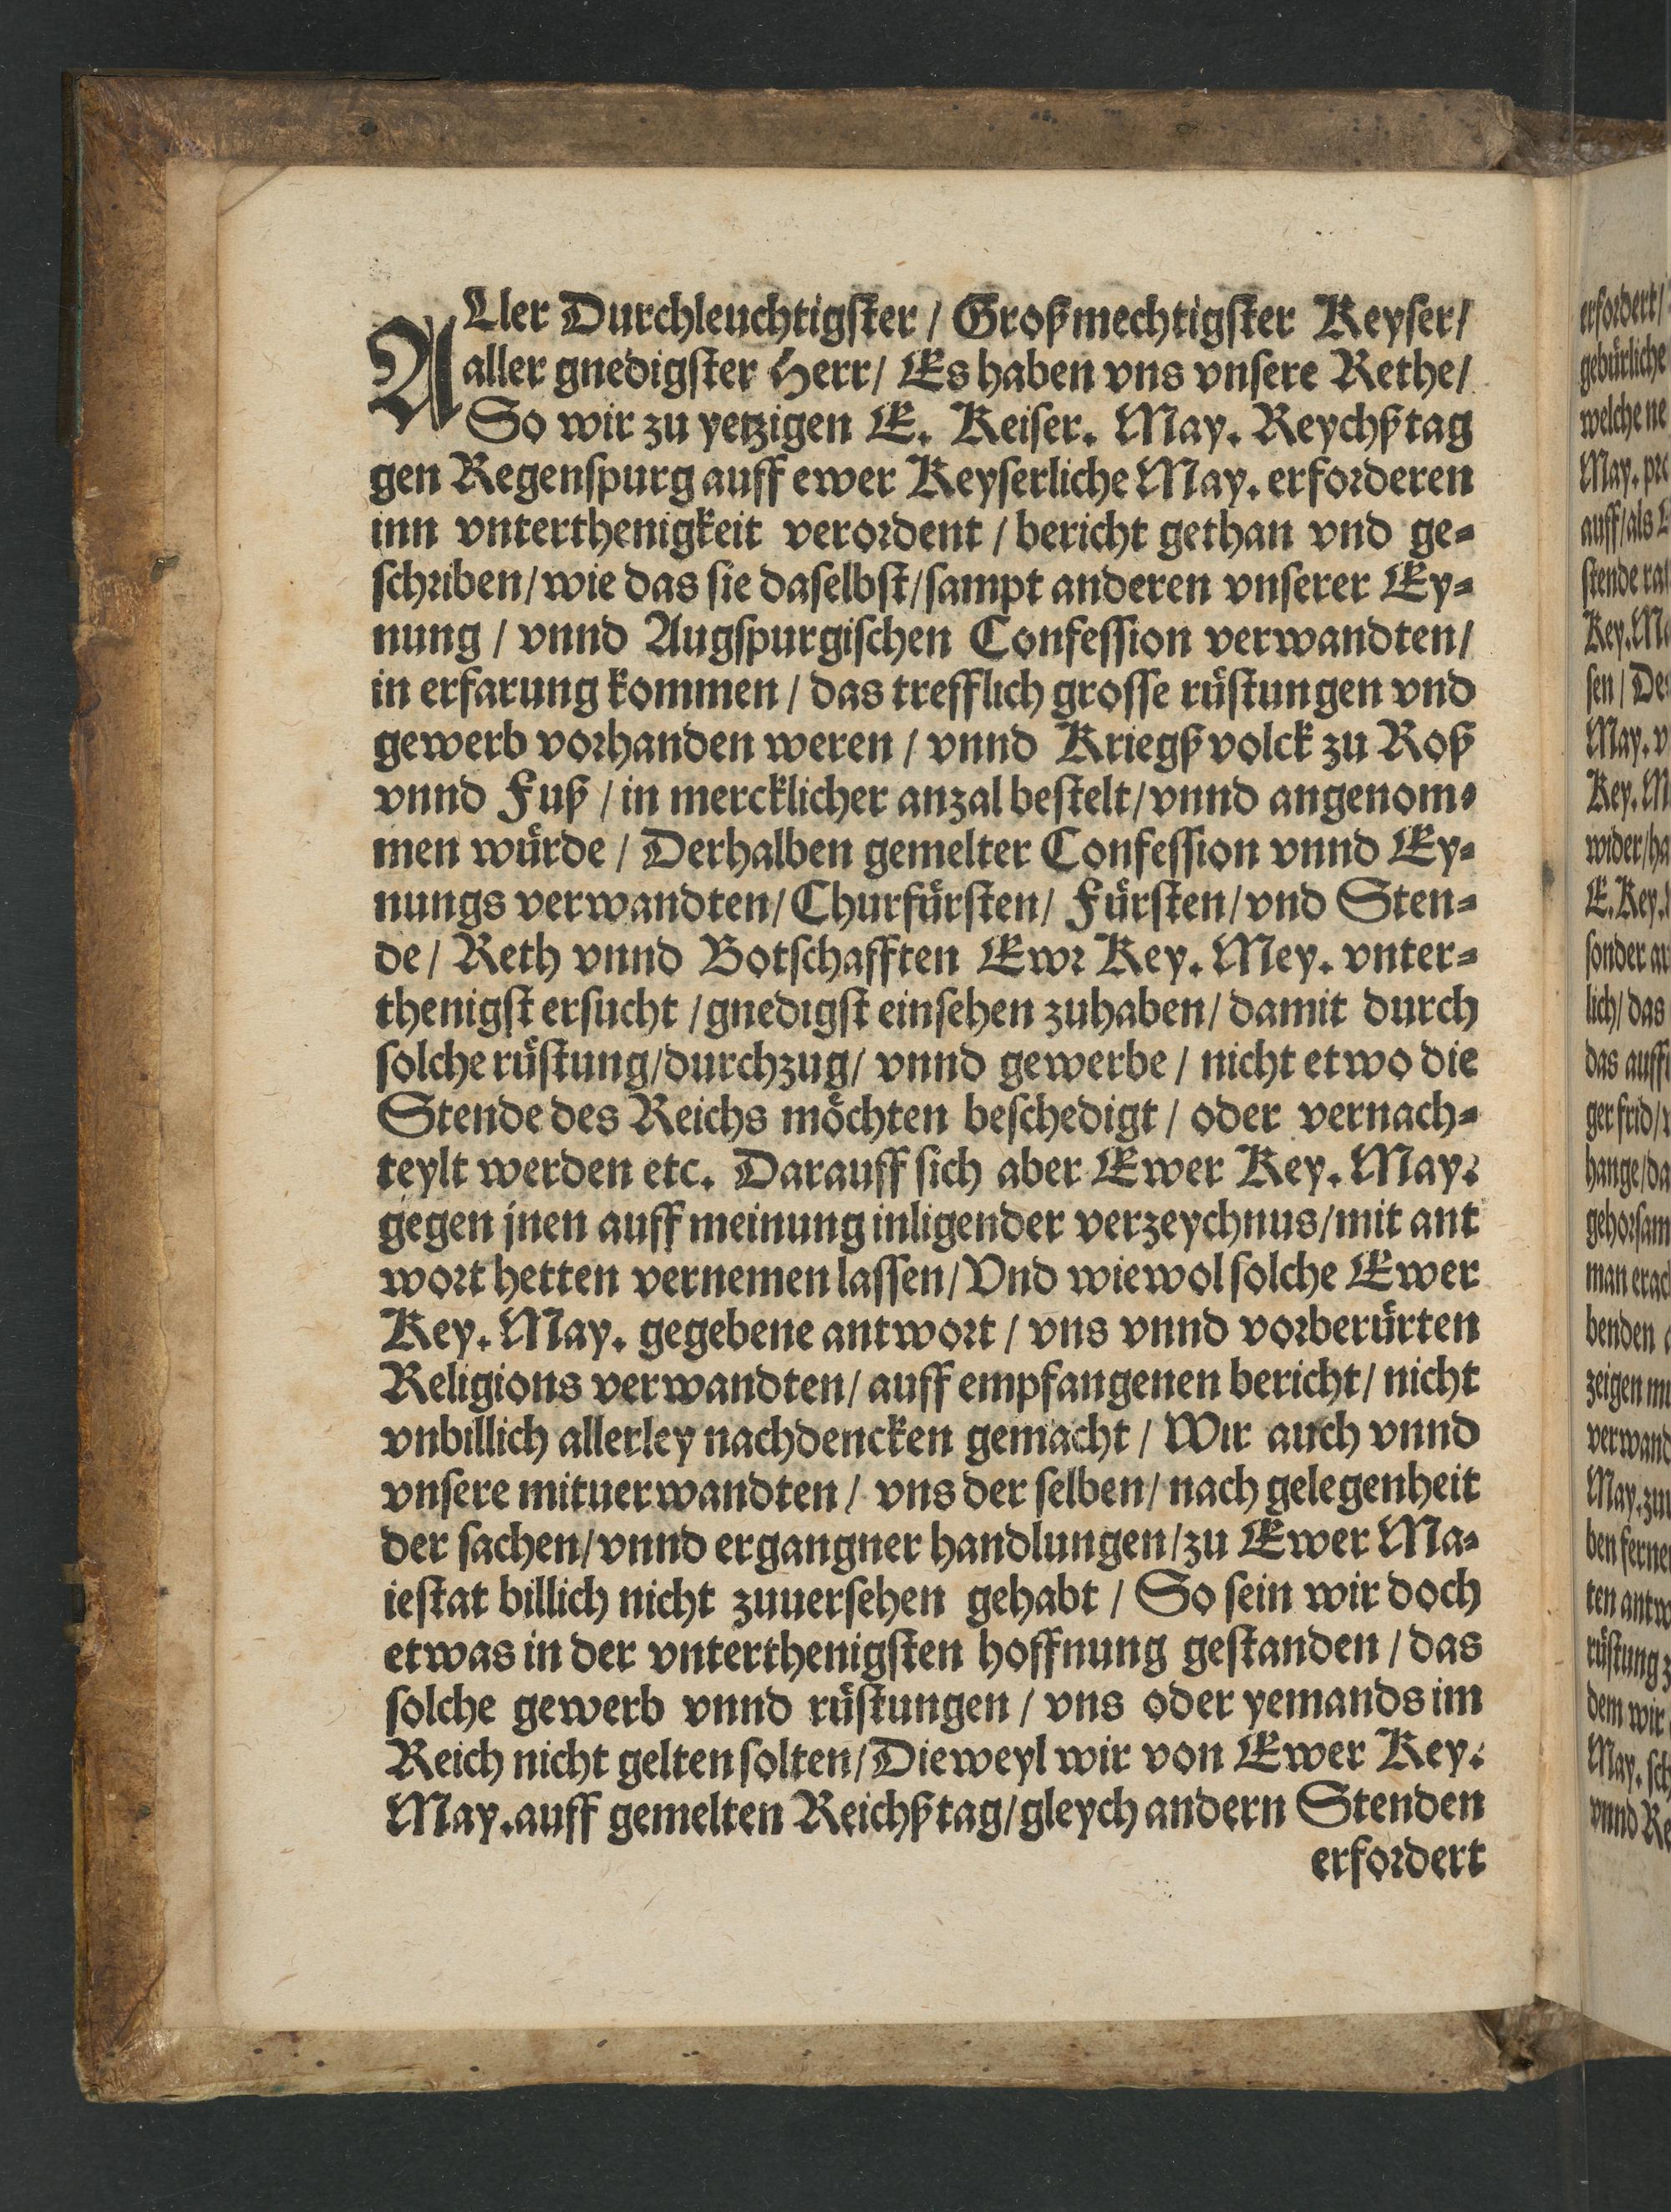 ALler Durchleuchtigster / Großmechtigster Keyser/
aller gnedigster Herr/ Es haben vns vnsere Rethe/
So wir zu yetzigen E. Keiser. May. Reychßtag
gen Regenspurg auff ewer Keyserliche May. erforderen
inn vnterthenigkeit verordent / bericht gethan vnd ge-
schriben/ wie das sie daselbst/ sampt anderen vnserer Ey-
nung / vnnd Augspurgischen Confession verwandten/
in erfarung kommen / das trefflich grosse rüstungen vnd
gewerb vorhanden weren / vnnd Kriegßvolck zu Roß
vnnd Fuß / in mercklicher anzal bestelt/ vnnd angenom-
men würde / Derhalben gemelter Confession vnnd Ey-
nungs verwandten/ Churfürsten/ Fürsten/ vnd Sten-
de/ Reth vnnd Botschafften Ewr Key. Mey. vnter-
thenigst ersucht / gnedigst einsehen zuhaben/ damit durch
solche rüstung/ durchzug/ vnnd gewerbe / nicht etwo die
Stende des Reichs möchten beschedigt / oder vernach-
teylt werden etc. Darauff sich aber Ewer Key. May.
gegen jnen auff meinung inligender verzeychnus/ mit ant
wort hetten vernemen lassen/ Vnd wiewol solche Ewer
Key. May. gegebene antwort / vns vnnd vorberürten
Religions verwandten/ auff empfangenen bericht/ nicht
vnbillich allerley nachdencken gemacht / Wir auch vnnd
vnsere mituerwandten / vns der selben/ nach gelegenheit
der sachen/ vnnd ergangner handlungen/ zu Ewer Ma-
iestat billich nicht zuuersehen gehabt / So sein wir doch
etwas in der vnterthenigsten hoffnung gestanden / das
solche gewerb vnnd rüstungen / vns oder yemands im
Reich nicht gelten solten/ Dieweyl wir von Ewer Key.
May. auff gemelten Reichßtag/ gleych andern Stenden
erfordert
erfordert/
gebürliche
welche ne
May.
auff/ als
stende
Key.
sen /
May.
Key.
wider/
E. Key.
sonder
lich/ das
das
ger frid/
hange/
gehorsam
man
benden
zeigen
May.
ten
rüstung
dem wir
May.
vnnd